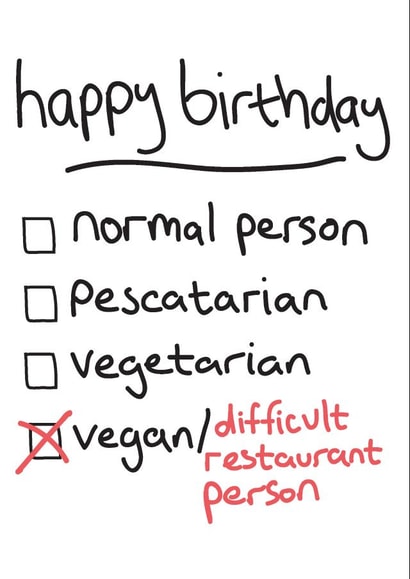 happy birthday
normal person
pescatarian
vegetarian
vegan/difficult
restaurant
person